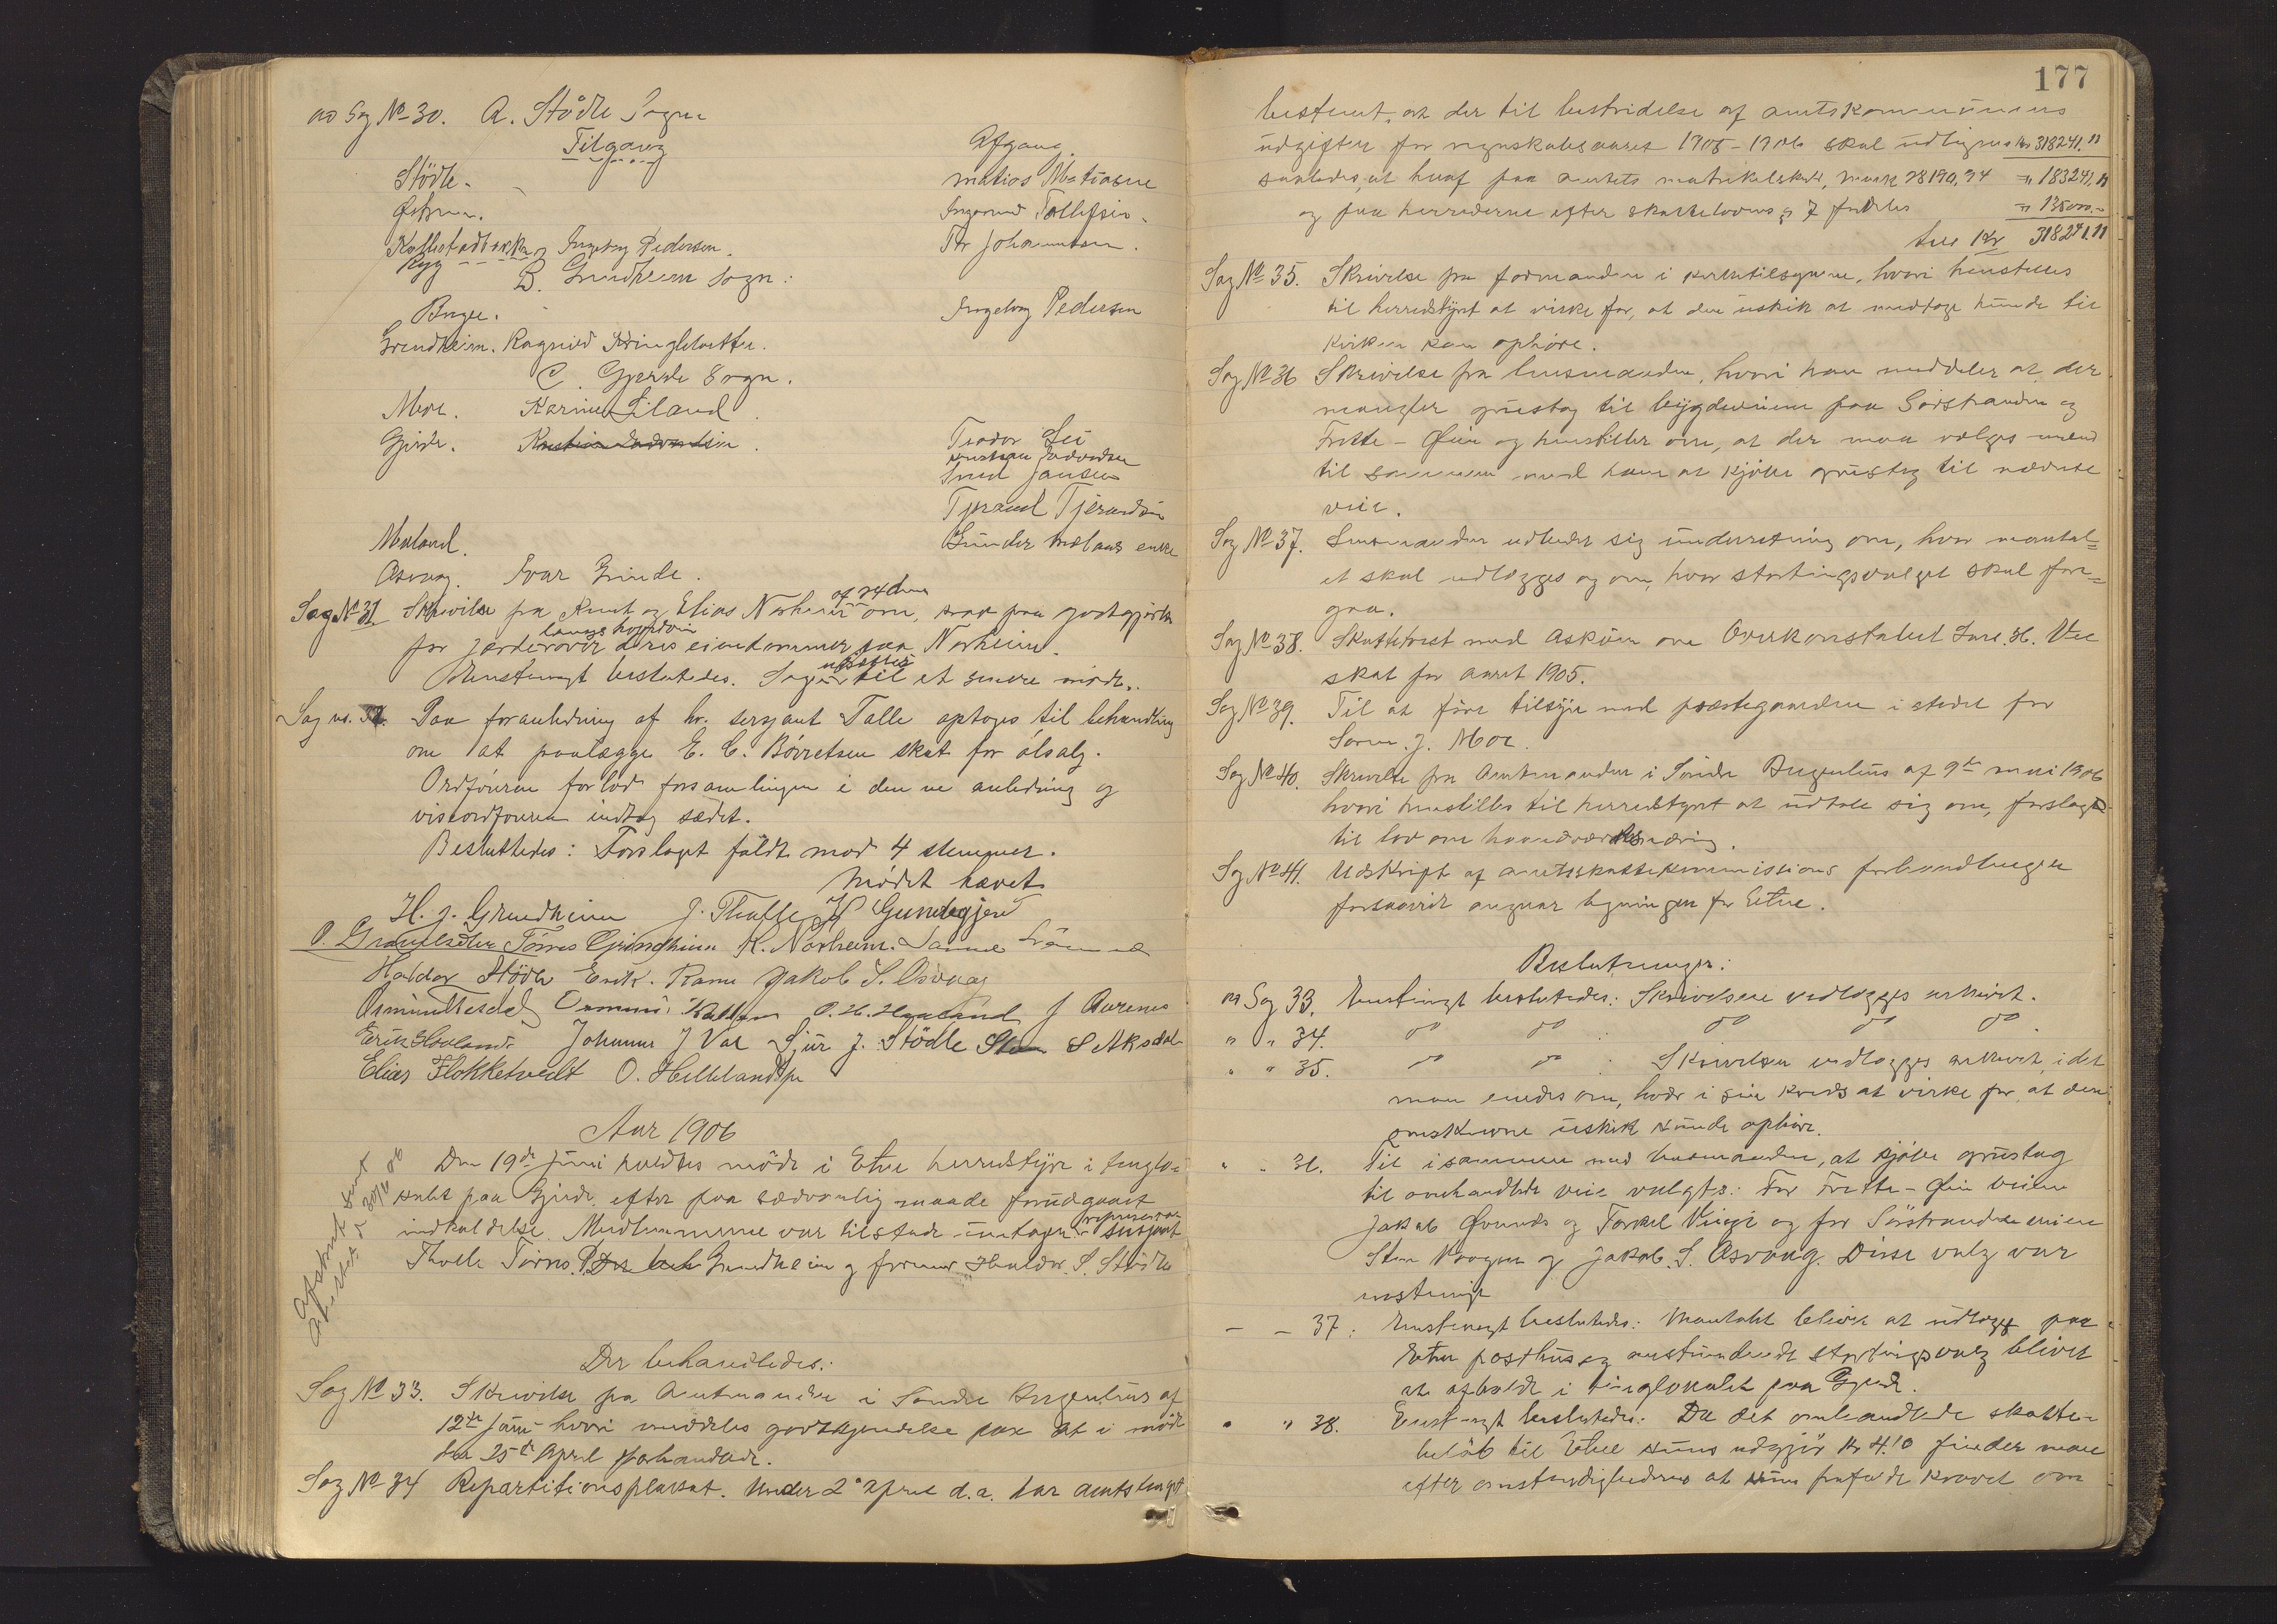 ad Sag No 30. A. Stödle Sogn
Tilgang
Afgang.
Stödle.
Matias Matiasen
Østrem.
Ingmund Tollefsen.
Kallestadbakka og Ingeborg Pedersen.
Tor Johannesen.
Ryg
B. Grindheim Sogn:
Bryge.
Ingeborg Pedersen
Grindheim. Ragnild Kringlebotten.
C. Gjerde Sogn.
Moe. Karine Eiland.
Gjerde. Kristian Endvardsen.
Teodor Lei
Kristian Endvardsen
Jansen
Tjerand Tjerandsen
Mæland.
Gunder Mælans enke
Osvag. Ivar Grinde.
Sag No 31. Skrivelse fra Knut og Elias Norheim om, svar paa godtgjörelse
af 24de
for jorderover deres eiendommer paa Norheim.
Enstemmigt besluttedes. Sagen udsættes til et senere möde.
Sag no. 32. Paa foranledning af hr. sersjant Talle optoges til behandling
om at paalægge E. C. Börretsen skat for ølsalg.
Ordføreren forlod forsamlingen i denne anledning og
viseordføreren indtog sædet.
Besluttedes: Forslaget faldt mod 4 stemmer.
Mødet hævet
H. J. Grindheim J. Thalle H Gundegjerd
Tørres Grindheim K. Norheim.
Haldor Stödle Erik Rame Jakob S. Osvaag
Osmund O. H. Høyland J Aurenes
Erik Hovland Johannes J Vae Sjur J. Stödle Sten S Aksdal
Elias Flokketveit O. Helleland
Aar 1906
Afskrift sendt
amtet d 30/6 06
Den 19de Juni holdtes möde i Etne herredstyre i tinglo-
kalet paa Gjerde efter paa sædvanlig maade forudgaaet
indkaldelse. Medlemmerne var tilstede undtagen sersjant
Thalle Tørres Grindheim og Haldor S. Stödle
Der behandledes:
Sag No 33. Skrivelse fra Amtmanden i Søndre Bergenhus af
12te Juni hvori meddeles godkjendelse paa det i möde
den 25de April forhandlede.
Sag No 34 Repartitionsplakat. Under 2den April d.a. har amtstinget
177
bestemt, at der til bestridelse af amtskommunens
udgifter for regnskabsaaret 1905-1906 skal udlignes kr 318241.11
saaledes, at heraf paa amtets matrikelskyld, mark 28190,94 " 183241,11
og paa herrederne efter skattelovens § 7 fordeles " 135000.-
tils Kr 318241.11
Sag No 35. Skrivelse fra formanden i kirketilsynene, hvori henstilles
til herredstyret at virke for, at den uskik at medtage hunde til
kirken kan ophøre.
Sag No 36 Skrivelse fra lensmanden, hvori han meddeler at der
mangler grustag til bygdeveiene paa Sørstranden og
Frette - Øien og henstiller om, at der maa vælges mænd
til sammen med ham at kjöbe grustag til nævnte
veie.
Sag No 37. Lensmanden udbeder sig underretning om, hvor mantal-
et skal udlægges og om, hvor stortingsvalget skal fore-
gaa.
Sag No 38. Skatteforest med Askøen om Overkonstabel Lars H. Vee
skat for aaret 1905.
Sag No 39. Til at føre tilsyn med præstegaarden i stedet for
Søren J. Moe.
Sag No 40. Skrivelse fra Amtmanden i Søndre Bergenhus af 9de mai 1906
hvori henstilles til herredstyret at udtale sig om, forslaget
til lov om haandværksnæring.
Sag No 41. Udskrift af amtsskattekommissions forhandlinger
forsaavidt angaar ligningen for Etne.
Beslutninger:
ad Sag 33. Enstemmigt besluttedes: Skrivelsen vedlægges arkivet.
" " 34. do do : do do do.
" " 35. do do : Skrivelsen vedlægges arkivet, idet
man enedes om, hver i sin kreds at virke for, at den
omskrevne uskik kunde ophøre.
" " 36. Til i sammen med lensmanden, at kjöbe grustag
til omhandlede veie valgtes: For Frette - Øien veien
Jakob Øvernes og Torkel Vinje og for Sörstrandeveien
Sten Vaagen og Jakob S. Osvaag. Disse valg var
enstemmigt
" " 37: Enstemmigt besluttedes: Mantallet bliver at udlægge paa
Etne posthus og anstundende stortingsvalg bliver
at afholde i tinglokalet paa Gjerde.
" " 38. Enstemmigt besluttedes: Da det omhandlede skatte-
beløb til Etne kuns udgjør Kr 4.10 finder man
efter omstændighederne at frafalde kravet om